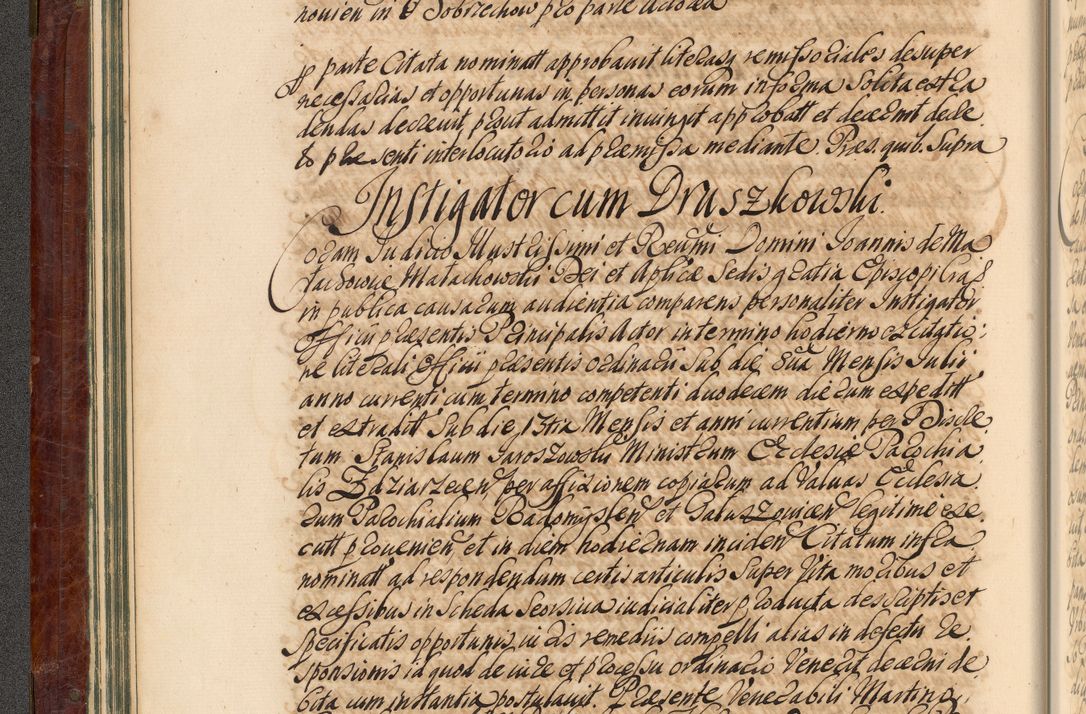 novien in E Dobrzechow pro parte Actorea
p parte Citata nominatt approbavit literasq remissoriales desuper
necessarias et opportunas in personas eorum in forma Solita extra
dendas decrevit, prout admittit iniungit approbatt et decernit decre
to praesenti interlocutorio ad praemissa mediante. Praes. quib. Supra
Instigator cum Druszkowski.
Coram Judicio Illustrissimi et Reverendissimi Domini Joannis de Ma
łachowice Małachowski Dei et Aplicae Sedis gratia Episcopi Crac
in publica causarum audientia comparens personaliter Instigator
Officii praesentis Principalis Actor in termino hodierno ex citatio:
ne literali Officii praesentis ordinarii Sub die 8va Mensis Julii
anno currenti cum termino competenti duodecem dierum expeditt
et extraditt Sub die 13tia Mensis et anni currentium per Discre
tum Stanislaum Jaroszowski Ministrum Ecclesiae Parochia
lis Zdziarzecen per affixionem copiarum ad Valvas Ecclesia
rum Parochialium Radomyslen et Galuszovicen legitime exe
cutt provenien et in diem hodiernam inciden Citatum infra
nominatt ad respondendum certis articulis Super Vita moribus et
excessibus in Scheda Seorsiva iudicialiter producta descriptis et
Specificatis opportunis iuris remediis compelli alias in defectu re
sponsionis id quod de iure et processu ordinario Venerit decerni de
bita cum instantia postulavit. Praesente Venerabili Martino